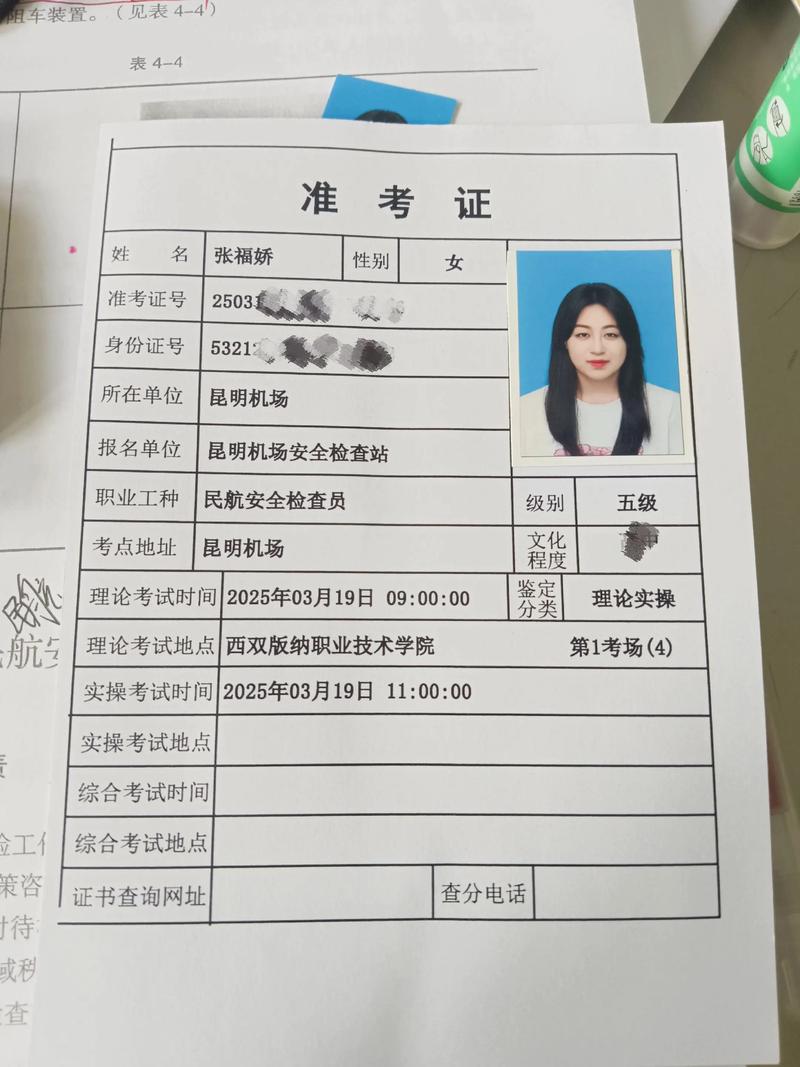 阻车装置。（见表 4-4）
表 4-4
准 考 证
姓 名 张福娇 性别 女
准考证号 2503
身份证号 5321
所在单位 昆明机场
报名单位 昆明机场安全检查站
职业工种 民航安全检查员 级别 五级
考点地址 昆明机场 文化程度
理论考试时间 2025年03月19日 09:00:00 鉴定分类 理论实操
理论考试地点 西双版纳职业技术学院 第1考场(4)
实操考试时间 2025年03月19日 11:00:00
实操考试地点
综合考试时间
综合考试地点
证书查询网址 查分电话
航安
责
检工作
策咨
对待
域秩
检查